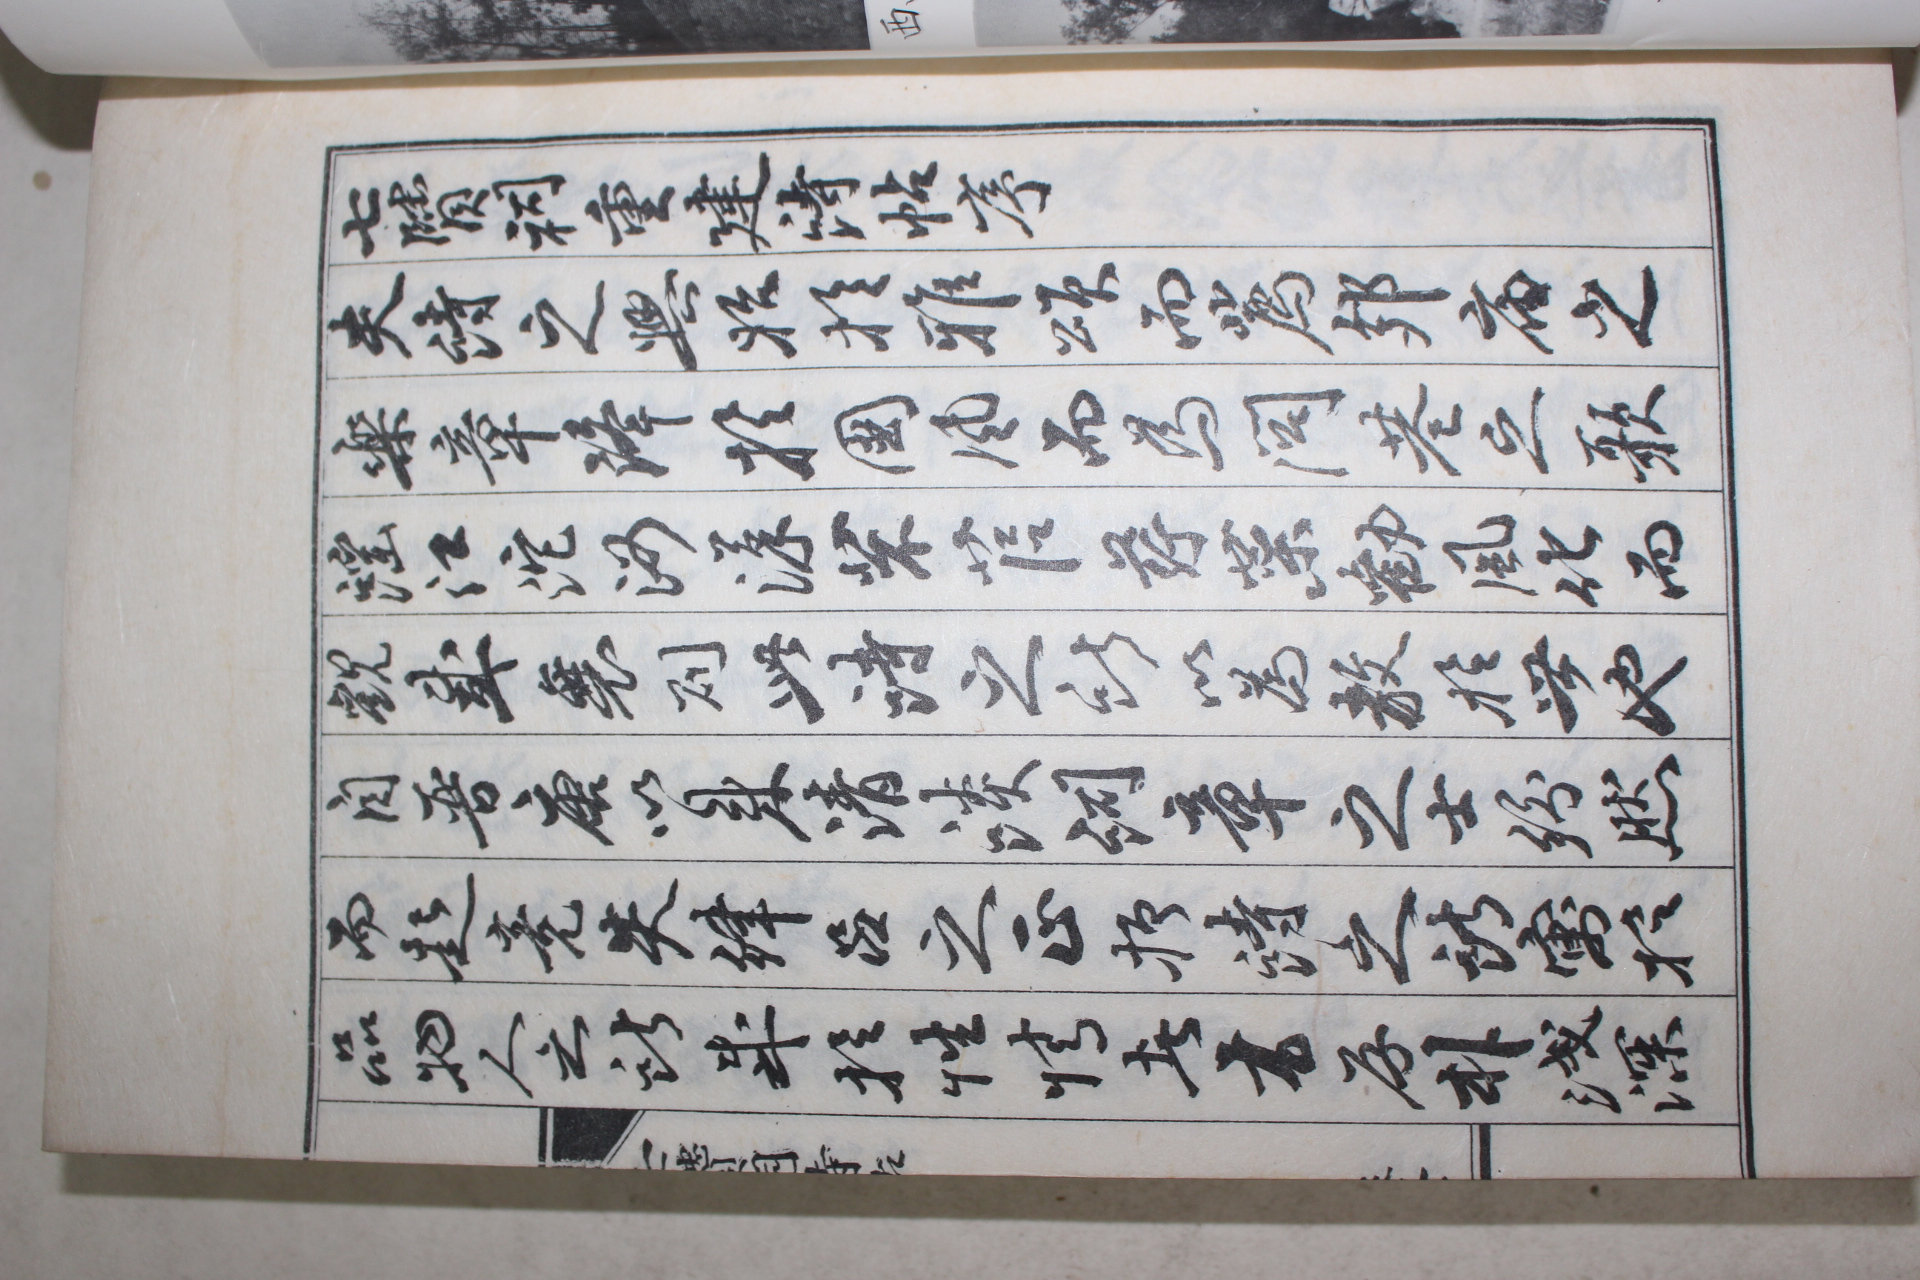 七賢祠重建詩帖序
夫詩之興始於雅頌而薦郊廟之
樂章降於國風而為閭巷之歌
謠江沱河漢芣苢荇菜勸風化而
觀盛衰則此詩之所以為教於世也
自晋唐以來清談詞章之士紛然
而起竟失律呂之正抑詩之所寓於
品物人之所感於性情者有存朴浅深
七賢祠詩帖
西